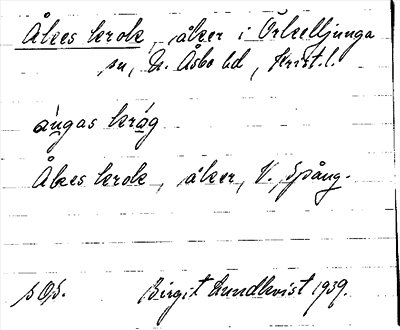 Åkes krok, åker i Örkelljunga
sn, N. Åsbo hd, Krist. l.
ángas kråg
Åkes krok, åker, V. Spång.
s Op.
Birgit Lundkvist 1939.